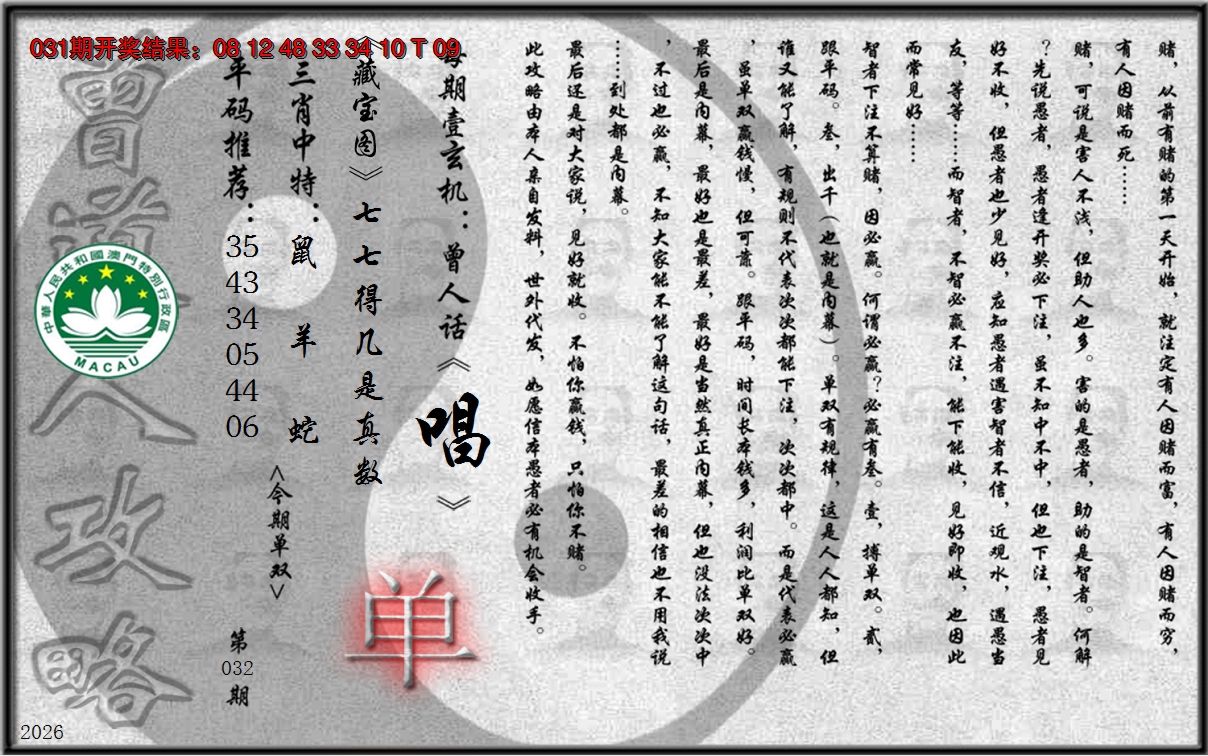 031期开奖结果：08 12 48 33 34 10 T 09
赌，从前有赌的第一天开始，就注定有人因赌而富，有人因赌而穷，
有人因赌而死……
赌，可说是害人不浅，但助人也多。害的是愚者，助的是智者。何解
？先说愚者，愚者逢开奖必下注，虽不知中不中，但也下注，愚者见
好不收，但愚者也少见好，应知愚者遇害智者不信，近观水，遇愚当
友，等等……而智者，不智必赢不注，能下能收，见好即收，也因此
而常见好……
智者下注不算赌，因必赢。何谓必赢？必赢有叁。壹，搏单双。贰，
跟平码。叁，出千（也就是内幕）。单双有规律，这是人人都知，但
谁又能了解，有规则不代表次次都能下注，次次都中。而是代表必赢
，虽单双赢钱慢，但可靠。跟平码，时间长本钱多，利润比单双好。
最后是内幕，最好也是最差，最好是当然真正内幕，但也没法次次中
，不过也必赢，不知大家能不能了解这句话，最差的相信也不用我说
……到处都是内幕。
最后还是对大家说，见好就收。不怕你赢钱，只怕你不赌。
此攻略由本人亲自发料，世外代发，如愿信本愚者必有机会收手。
每期壹玄机：曾人话《唱》
《藏宝图》七七得几是真数
三肖中特：鼠 羊 蛇
<今期单双>
单
平码推荐：35 43 34 05 44 06
第032期
曾道人攻略
中華人民共和國澳門特別行政區
MACAU
2026